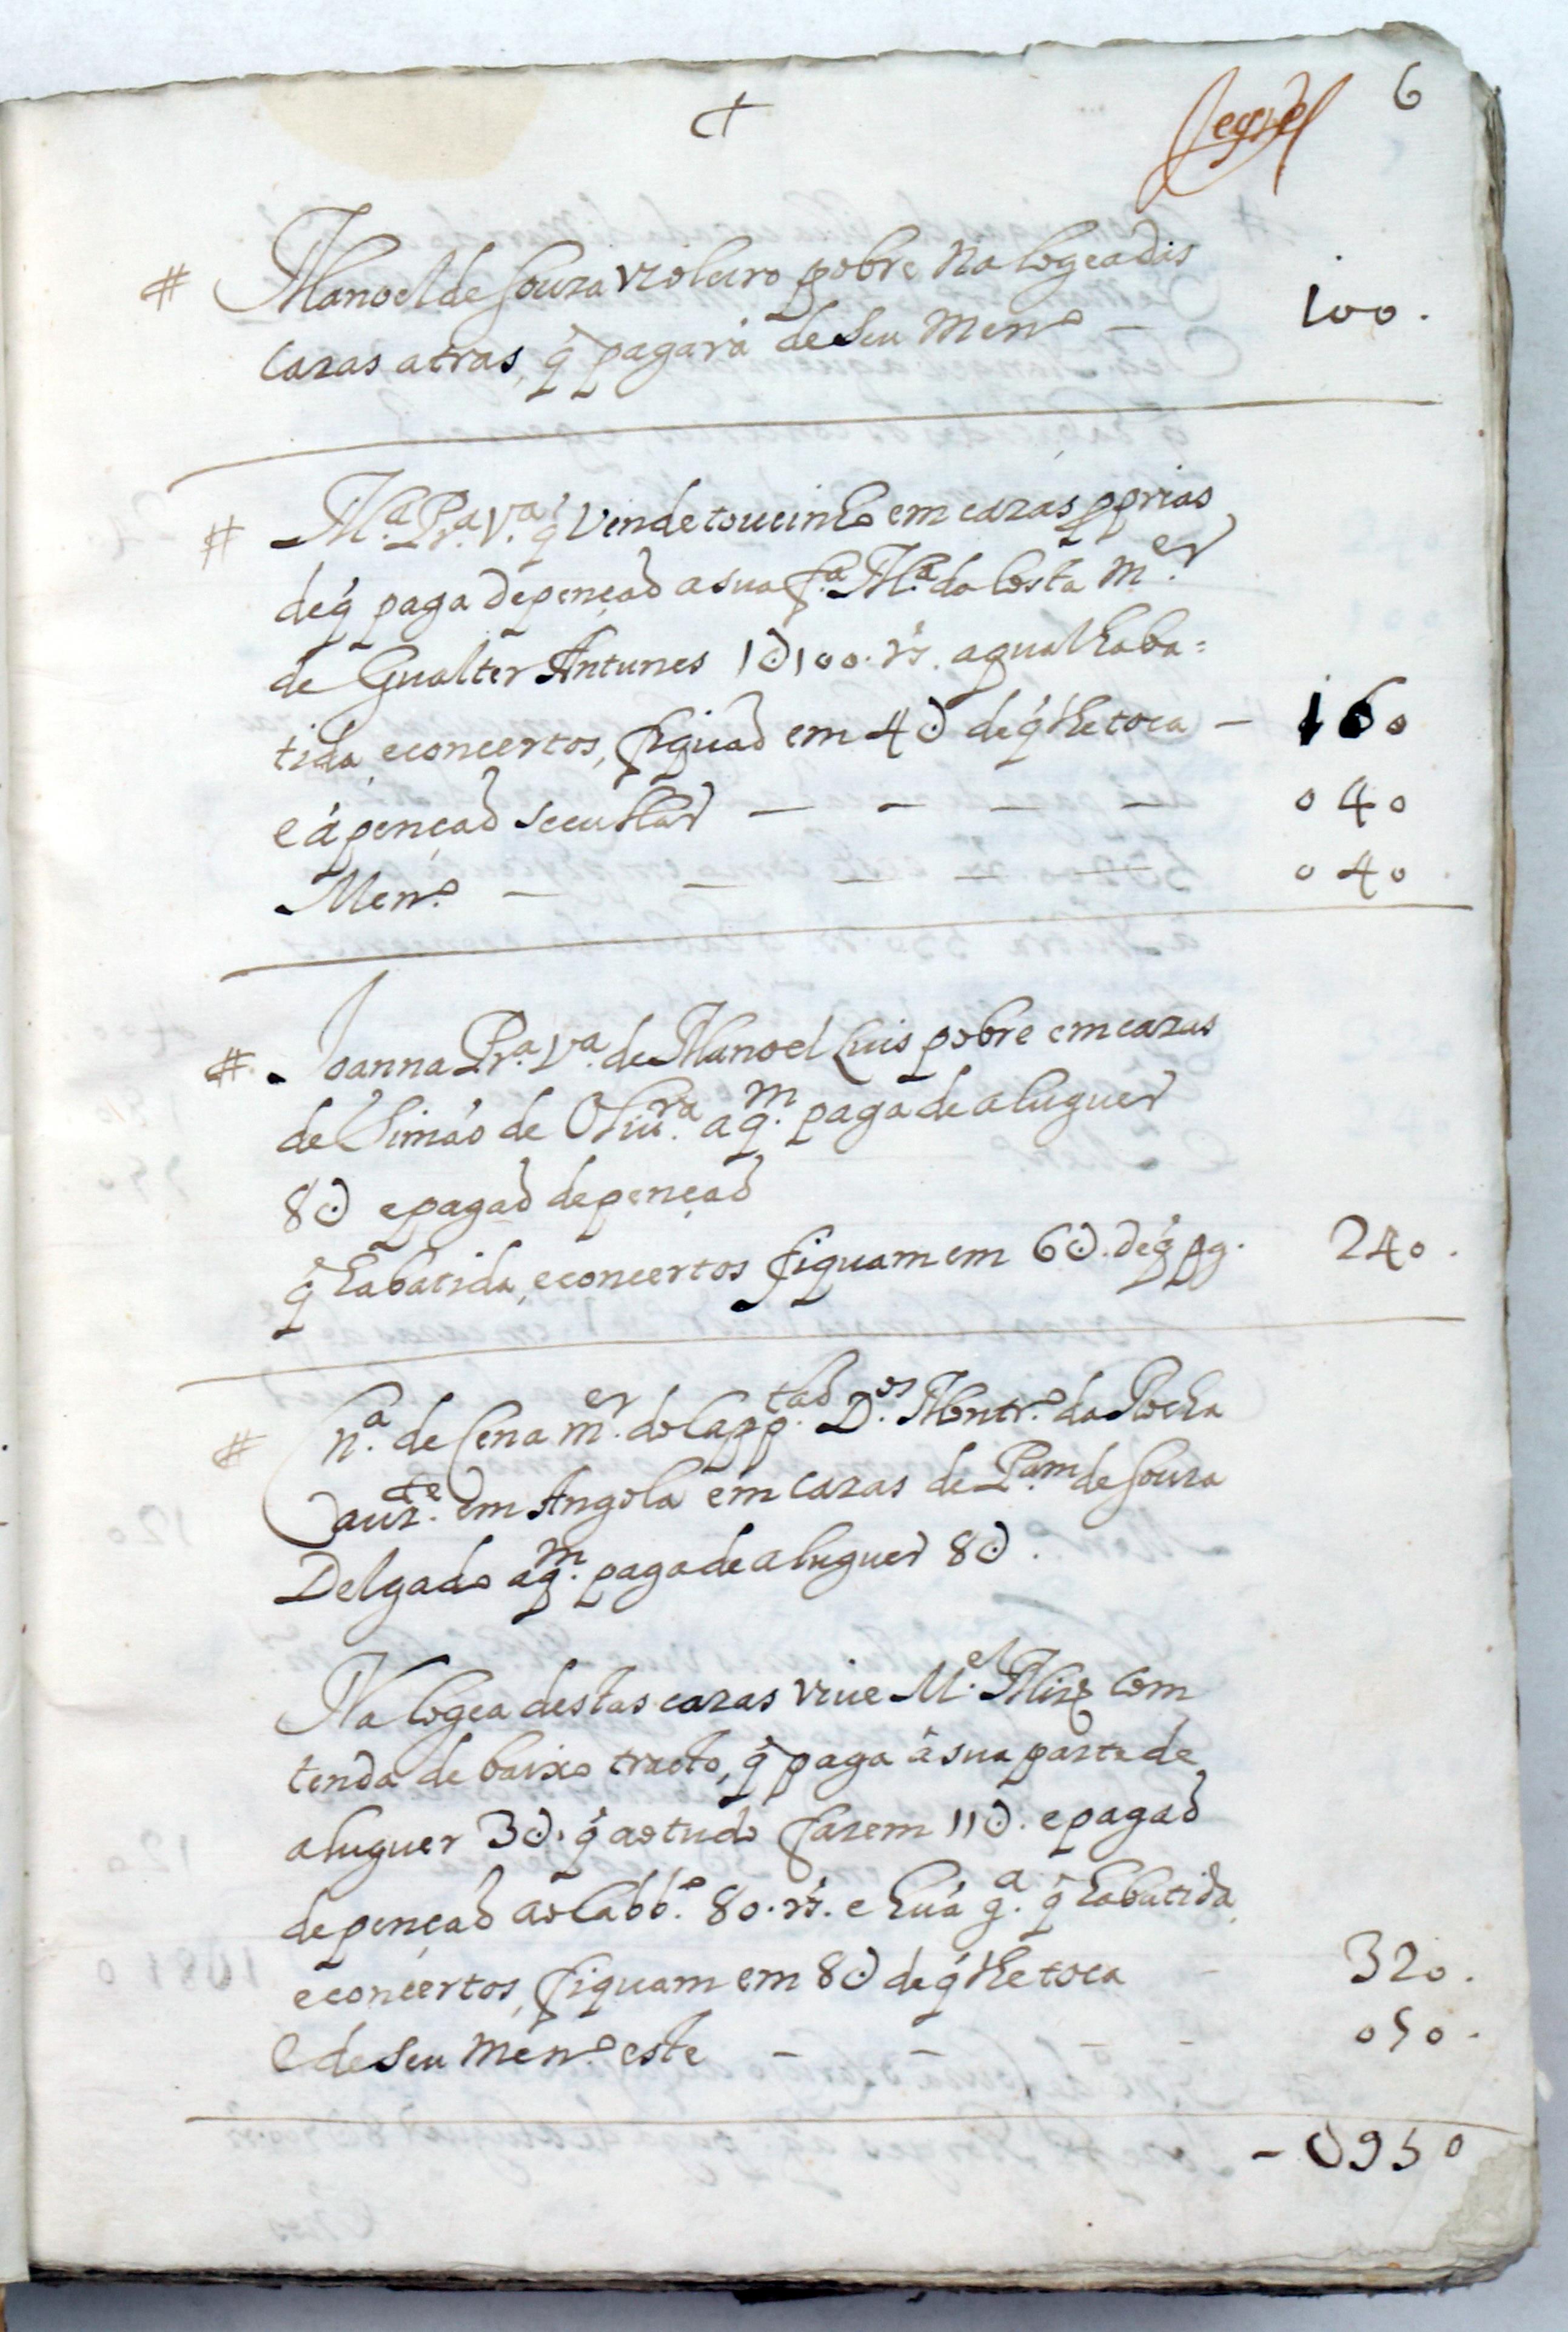 6
# Manoel de Souza violeiro pobre na logea dis
cazas atras, q̃ pagará de seu Men.º — 100.
# M.ª Pr.ª V.ª q̃ vende toucinho em cazas pprias
de q̃ paga de pençaõ a sua f.ª M.ª da Costa m.er
de Gualter Antunes 1∂100. rs. a qual haba=
tida, e concertos, fiquaõ em 4∂ de q̃ lhe toca — 160
e á pençaõ secullar — — — — 040
Men.º — — — — — 040
# Joanna Pr.ª V.ª de Manoel Luis pobre em cazas
de Simaõ de Oliu.ra a q.m paga de aluguer
8∂ e pagaõ de pençaõ
q̃ habatida, e concertos fiquam em 6∂. de q̃ pg. 240.
# Cn.ª de Cena m.er do Capp.taõ D.os Montr.º da Rocha
auz.te em Angola em cazas de P.am de Souza
Delgado a q.m paga de aluguer 8∂.
Na logea destas cazas viue M.el Miz com
tenda de baixo tracto, q̃ paga á sua parte de
aluguer 3∂. q̃ ao tudo fazem 11∂. e pagaõ
de pençaõ ao Cabb.º 80. rs. e huá g.ª q̃ habatida,
e concertos, fiquam em 8∂ de q̃ lhe toca — 320.
E de seu men.º este — — — — 090.
— ∂950